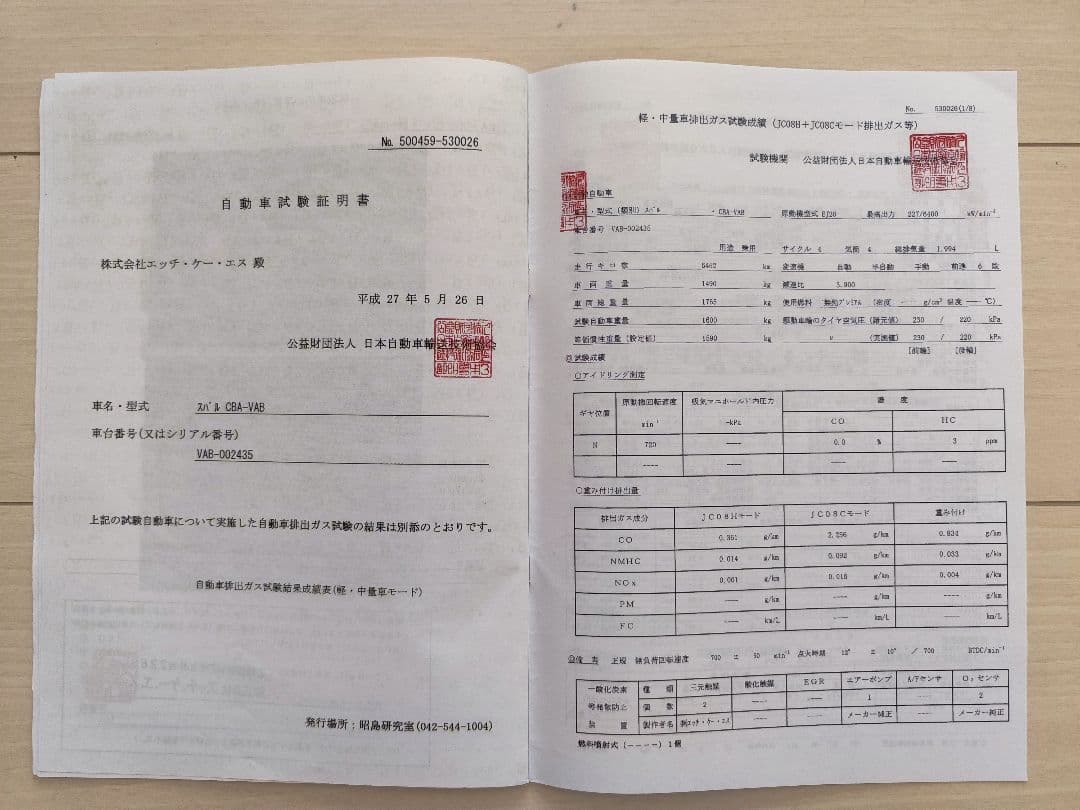 No. 500459-530026
自動車試験証明書
株式会社エッチ・ケー・エス 殿
平成 27 年 5 月 26 日
公益財団法人 日本自動車輸送技術協会
車名・型式 スバル CBA-VAB
車台番号(又はシリアル番号)
VAB-002435
上記の試験自動車について実施した自動車排出ガス試験の結果は別添のとおりです。
自動車排出ガス試験結果成績表(軽・中量車モード)
発行場所;昭島研究室(042-544-1004)
No. 530026(1/8)
軽・中量車排出ガス試験成績(JC08H+JC08Cモード排出ガス等)
試験機関 公益財団法人日本自動車輸送技術協会
自動車
・型式(類別) スバル ・CBA-VAB 原動機型式 EJ20 最高出力 227/6400 kW/min⁻¹
車台番号 VAB-002435
用途 乗用 サイクル 4 気筒 4 総排気量 1.994 L
走行キロ数 5462 km 変速機 自動 半自動 手動 前進 6 段
車両重量 1490 kg 減速比 3.900
車両総重量 1765 kg 使用燃料 無鉛プレミアム (密度 ---- g/cm³ 温度 ---- ℃)
試験自動車重量 1600 kg 駆動車輪のタイヤ空気圧(諸元値) 230 / 220 kPa
等価慣性重量(設定値) 1590 kg 〃 (実測値) 230 / 220 kPa
[前輪] [後輪]
◎試験成績
○アイドリング測定
ギヤ位置 原動機回転速度 min⁻¹ 吸気マニホールド内圧力 -kPa 濃度
CO HC
N 720 ---- 0.0 % 3 ppm
---- ---- ---- ----
○重み付け排出量
排出ガス成分 JC08Hモード JC08Cモード 重み付け
CO 0.361 g/km 2.256 g/km 0.834 g/km
NMHC 0.014 g/km 0.092 g/km 0.033 g/km
NOx 0.001 g/km 0.016 g/km 0.004 g/km
PM ---- g/km ---- g/km ---- g/km
FC ---- km/L ---- km/L ---- km/L
◎備考 正規 無負荷回転速度 700 ± 50 min⁻¹ 点火時期 12° ± 10° / 700 BTDC/min⁻¹
一酸化炭素等発散防止装置 種類 三元触媒 酸化触媒 EGR エアーポンプ A/Fセンサ O₂センサ
個数 2 ---- ---- 1 ---- 2
製作者名 ㈱エッチ・ケー・エス ---- ---- メーカー純正 ---- メーカー純正
燃料噴射式(----) 1個